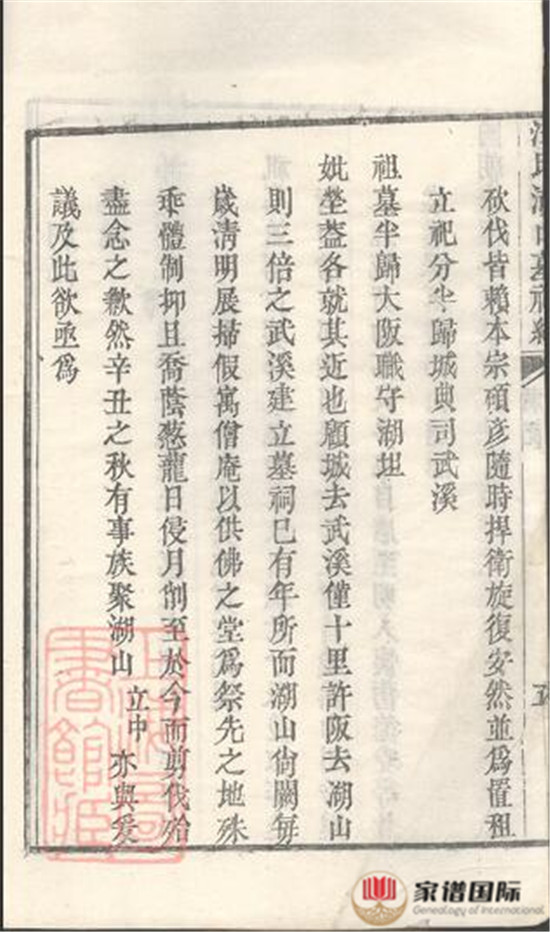 砍伐皆賴本宗碩彥隨時捍衛旋復安然並爲置租
立祀分半歸城典司武溪
祖墓半歸大阪職守湖坦
妣塋葢各就其近也顧城去武溪僅十里許阪去湖山
則三倍之武溪建立墓祠巳有年所而湖山尙闕每
歲清明展掃假寓僧庵以供佛之堂爲祭先之地殊
乖體制抑且喬蔭葱蘢日侵月削至於今而剪伐殆
盡念之歉然辛丑之秋有事族聚湖山 立中 亦與爰
議及此欲亟爲
家谱国际
Genealogy of International